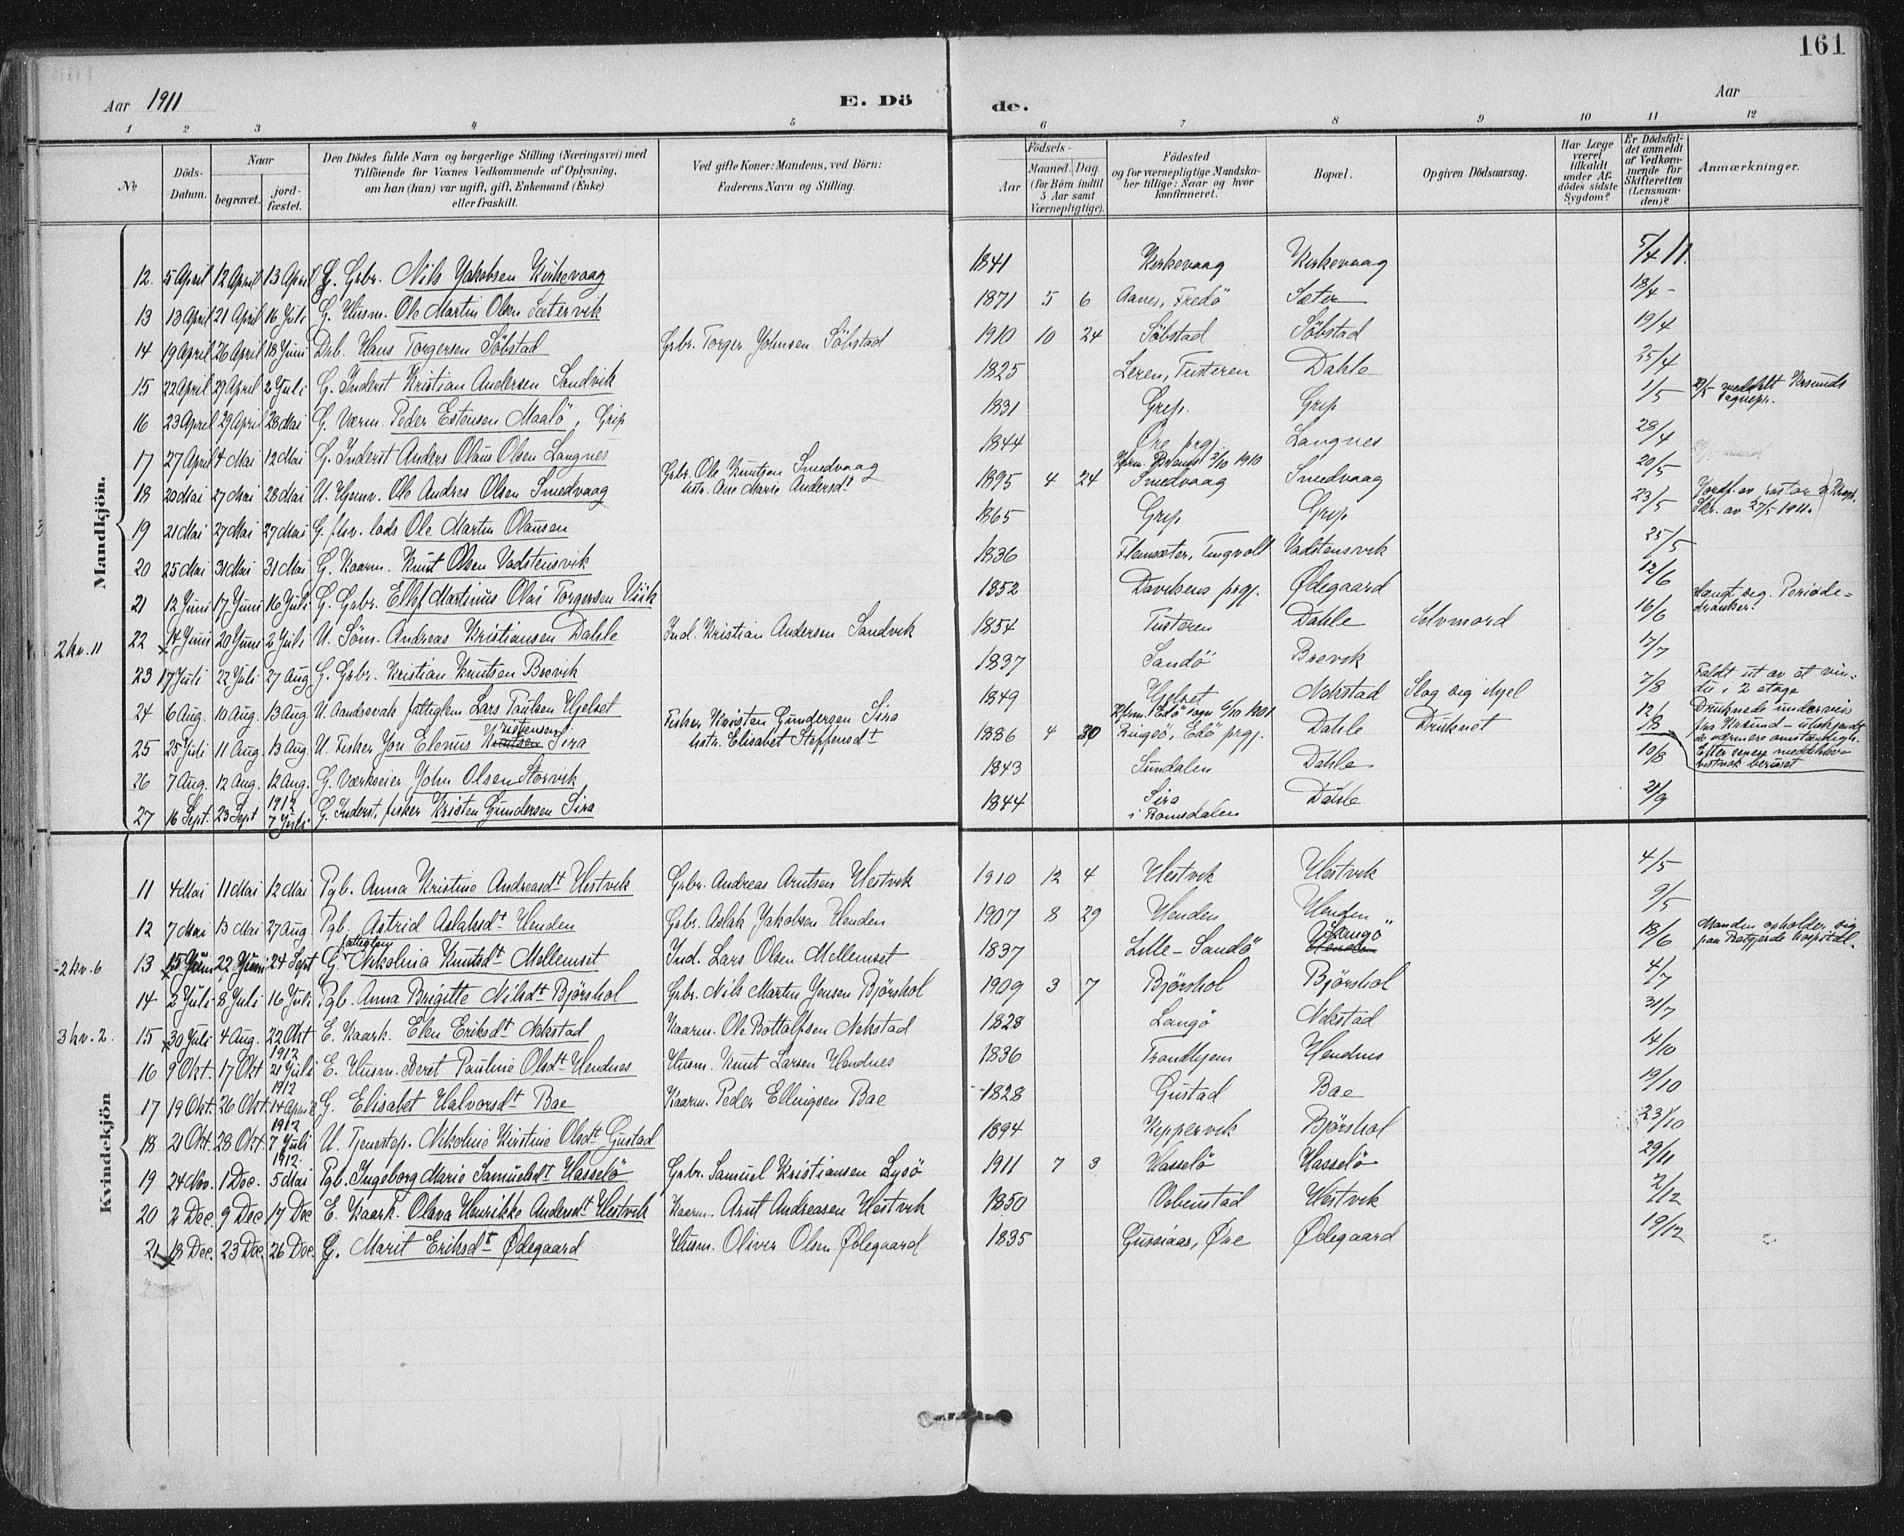 161
Aar 1911
E. Dö
de.
Aar
1 2 3 4 5 6 7 8 9 10 11 12
No
Döds-Datum.
Naar
begravet.
jord-fæstet.
Den Dödes fulde Navn og borgerlige Stilling (Næringsvei) med
Tilföiende for Voxnes Vedkommende af Oplysning,
om han (hun) var ugift, gift, Enkemand (Enke)
eller fraskilt.
Ved gifte Koner: Mandens, ved Börn:
Faderens Navn og Stilling.
Födsels-
Aar
Maaned. Dag.
(for Börn indtil
5 Aar samt
Værnepligtige).
Födested
og for værnepligtige Mandska-
ber tillige: Naar og hvor
konfirmeret.
Bopæl.
Opgiven Dödsaarsag.
Har Læge
været
tilkaldt
under Af-
dödes sidste
Sygdom?
Er Dödsfal-
det anmeldt
af Vedkom-
mende for
Skifteretten
(Lensman-
den)?
Anmærkninger.
Mandkjön.
12. 5 April 12 April 13 April G. Grbr. Nils Jakobsen Kirkevaag 1841 Kirkevaag Kirkevaag 5/4 11.
13 13 April 21 April 16 Juli G. Husm. Ole Martin Olsen Sætervik 1871 5 6 Aanes, Fredö Sæter 18/4 -
14 19 April 26 April 18 Juni Drb. Hans Torgersen Söbstad Grbr. Torger Johnsen Söbstad 1910 10 24 Söbstad Söbstad 19/4
15 22 April 29 April 2 Juli G. Inderst Kristian Andersen Sandvik 1825 Leren, Tusteren Dahle 25/4
16 23 April 29 April 28 Mai G. Værm. Peder Estensen Maalö, Grip 1831 Grip. Grip 1/5 meddelt Krsunds
17 27 April 4 Mai 12 Mai G. Inderst Anders Olaus Olsen Langnes 1844 Öre prgj. Langnes 28/4
18 20 Mai 27 Mai 28 Mai U. Hjemv. Ole Andres Olsen Smedvaag Grbr. Ole Knutsen Smedvaag
Hstr. Ane Marie Andersdt 1895 4 24 Kfrm. Bremsn. 2/10 1910
Smedvaag Smedvaag 20/5
19 21 Mai 27 Mai 27 Mai G. fhv. lods Ole Martin Olausen 1865 Grip Grip 23/5 Jordf. av
Skr. av 27/5 1911.
20 25 Mai 31 Mai 31 Mai G. Kaarm. Knut Olsen Vadstensvik 1836 Flemsæter, Tingvoll Vadstensvik 25/5
21 12 Juni 17 Juni 16 Juli G. Grbr. Ellef Martinus Olai Torgersen Viik 1852 Davikens prgj. Ødegaard 12/6
2 kv. 11 22 14 Juni 20 Juni 2 Juli U. Söm. Andreas Kristiansen Dahle Ind. Kristian Andersen Sandvik 1854 Tusteren Dahle Selvmord 16/6 Hængt seg. Periode-
dranker.
23 17 Juli 22 Juli 27 Aug G. Grbr. Kristian Knutsen Brevik 1837 Sandö Brevik 17/7
24 6 Aug. 10 Aug. 13 Aug. U. Aandssvak fattiglem Lars Paulsen Hjelset 1849 Hjelset Nekstad Slog sig ihjel 7/8 Faldt ut av et vin-
du i 2 etage
25 25 Juli 11 Aug 13 Aug U. Fisker Jon Elonus Knutsen Kristensen Sira Fisker Kristen Gundersen Sira
Hstr. Elisabet Steffensdt 1886 4 30 Kfrm. Edö sogn 6/10 1901
Ringsö, Edö prgj. Dahle Druknet 12/8 Druknede underveis
fra Krsund - ubekjendt
de nærmere omstændigh.
Efter senere meddelelse
beruset
26 7 Aug. 12 Aug. 12 Aug. G. Værkseier John Olsen Storvik 1843 Sundalen Dahle 10/8
27 16 Sept. 23 Sept 1912 7 Juli G. Inderst, fisker Kristen Gundersen Sira 1844 Sira
i Romsdalen Dahle 21/9
Kvindekjön
11 4 Mai 11 Mai 12 Mai Pgb. Anna Kristine Andreasdt Hestvik Grbr. Andreas Arntsen Hestvik 1910 12 4 Hestvik Hestvik 4/5
12 7 Mai 13 Mai 27 Aug Pgb. Astrid Aslaksdt Henden Grbr. Aslak Jakobsen Henden 1907 8 29 Henden Henden 9/5
2 kv. 6 13 15 Juni 22 Juni 24 Sept G. fattiglem Nikolina Knutsdt Mellemset Ind. Lars Olsen Mellemset 1837 Lille-Sandö Langö Henden 18/6 Manden opholder sig
paa Retgjerde hospital.
14 2 Juli 8 Juli 16 Juli Pgb. Anna Brigitte Nilsdt Björshol Grbr. Nils Martin Jensen Björshol 1909 3 7 Björshol Björshol 4/7
3 kv. 2. 15 30 Juli 4 Aug. 22 Okt E. Kaark. Elen Eriksdt Nekstad Kaarm. Ole Bottolfsen Nekstad 1828 Langö Nekstad 31/7
16 9 Okt. 17 Okt 1912 21 Juli E. Husm. Beret Pauline Olsdt Hendnes Husm. Knut Larsen Hendnes 1836 Trondhjem Hendnes 14/10
17 19 Okt. 26 Okt. 1912 14 April G. Elisabet Halvorsdt Bae Kaarm. Peder Ellingsen Bae 1828 Gustad Bae 19/10
18 21 Okt. 28 Okt 1912 7 Juli U. Tjenestep. Nikoline Kirstine Olsdt Gustad 1894 Kippervik Björshol 23/10
19 24 Nov. 1 Dec. 1912 5 Mai Pgb. Ingeborg Marie Samuelsdt Hasselö Grbr. Samuel Kristiansen Lysö 1911 7 3 Hasselö Hasselö 29/11
20 2 Dec. 9 Dec 17 Dec E. Kaark. Olava Henrikke Andersdt Hestvik Kaarm. Arnt Andreasen Hestvik 1850 Hestvik 2/12
21 18 Dec. 23 Dec. 26 Dec. G. Marit Eriksdt Ødegaard Husm. Oliver Olsen Ødegaard 1835 Gussiaas, Øre Ødegaard 19/12